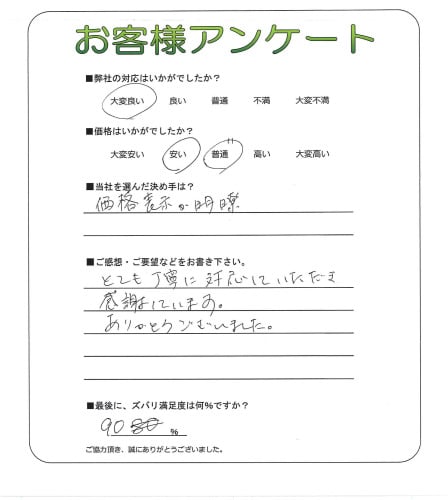 お客様アンケート
■弊社の対応はいかがでしたか？
大変良い 良い 普通 不満 大変不満
■価格はいかがでしたか？
大変安い 安い 普通 高い 大変高い
■当社を選んだ決め手は？
価格表示が明瞭
■ご感想・ご要望などをお書き下さい。
とても丁寧に対応していただき
感謝しています。
ありがとうございました。
■最後に、ズバリ満足度は何%ですか？
90 %
ご協力頂き、誠にありがとうございました。